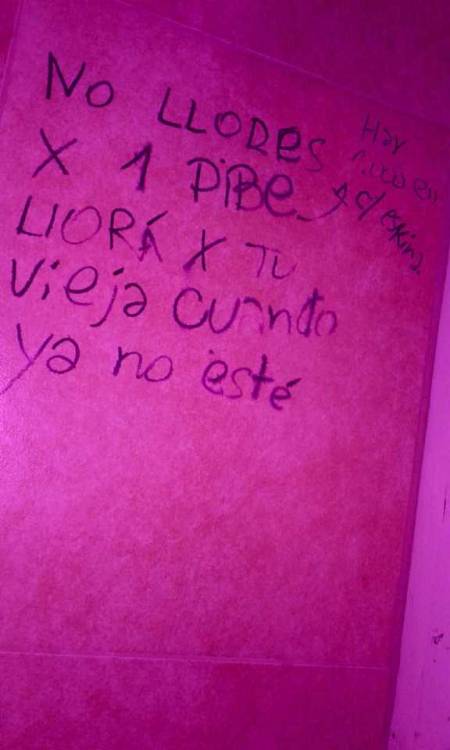 No LLORES
X 1 PiBE
LlORÁ X TU
vieja cuando
ya no esté
Hay
en
c/ eskina